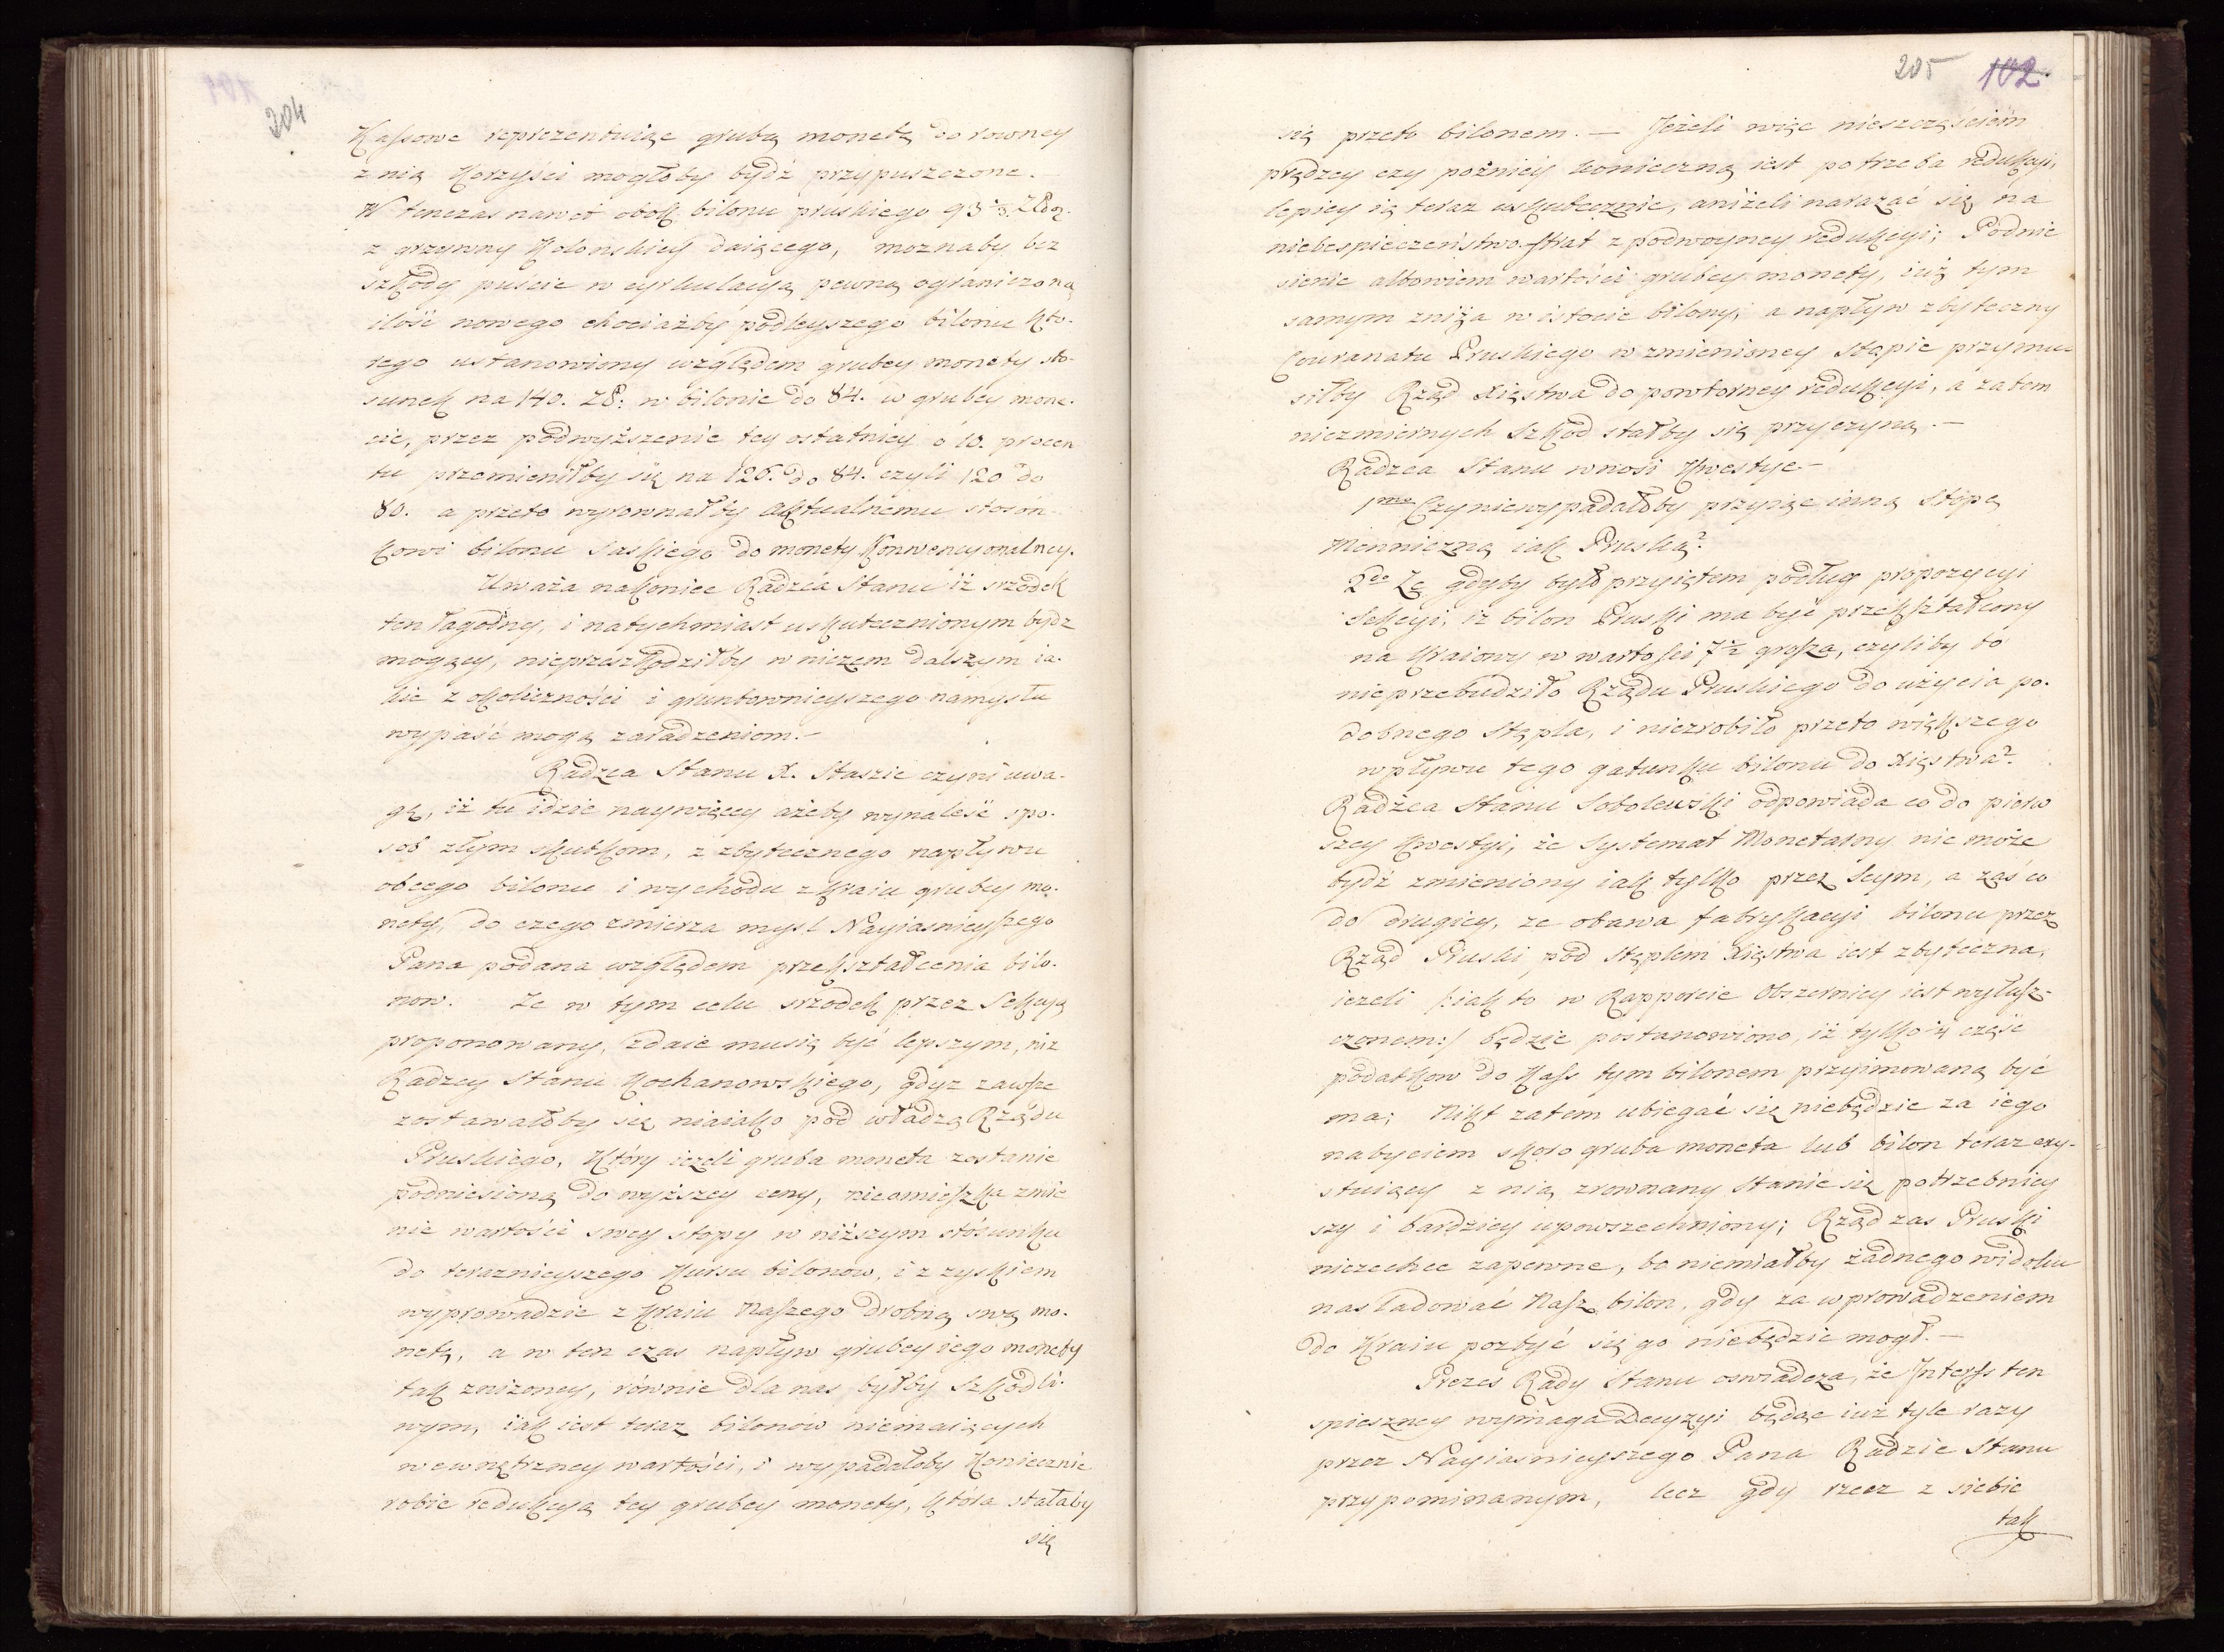 204
Kassowe reprezentuiące grubą monetę do rowney
z nią Korzyści mogłoby bydź przypuszczone.
W tenczas nawet obok bilonu pruskiego 93⅓ Złp.
z grzywny Kolonskiey daiącego, moznaby bez
szkody puścic w cyrkulacyą pewną ograniczoną
ilość nowego chociażby podleyszego bilonu kto-
rego ustanowiony względem grubey monety sto-
sunek na 140. Zł: w bilonie do 84. w grubey mone-
cie, przez podwyższenie tey ostatniey o 10. procen
tu przemieniłby się na 126. do 84. czyli 120 do
80. a przeto wyrownałby aktualnemu stosón-
kowi bilonu Saskiego do monety Konwencyonalney.
Uważa nakoniec Radzca Stanu iż srzodek
ten łagodny, i natychmiast uskutecznionym bydz
mogący, nieprzeszkodziłby w niczem dalszym ia-
kie z okoliczności i gruntownieyszego namysłu
wypaść mogą zaradzeniom.-
Radzca Stanu X. Staszic czyni uwa-
gę, iż tu idzie naywięcey ażeby wynaleść spo-
sob złym skutkom, z zbytecznego napływu
obcego bilonu i wychodu z Kraiu grubey mo-
nety, do czego zmierza mysl Nayiasnieyszego
Pana podana względem przekształcenia bilo-
now. Ze w tym celu srzodek przez Sekcyą
proponowany, zdaie mu się być lepszym, niz
Radzcy Stanu Kochanowskiego, gdyz zawsze
zostawałoby się nieiako pod władzą Rządu
Pruskiego, Który ieżeli gruba moneta zostanie
podniesioną do wyższey ceny, nieomieszka zniże
nie wartości swey stopy w niższym stósunku
do teraznieyszego Kursu bilonow, i z zyskiem
wyprowadzic z Kraiu Naszego drobną swą mo-
netę, a w ten czas napływ grubey iego monety
tak zniżoney, równie dla nas byłby Szkodli-
wym, iak iest teraz bilonów niemaiących
wewnętrzney wartości, i wypadałoby Koniecznie
robic redukcyą tey grubey monety, która stałaby
się
205 102.
się przeto bilonem. — Jeżeli więc nieszczęściem
prędzey czy poźniey konieczną iest potrzeba redukcyi,
lepiey ią teraz uskutecznic, aniżeli narazać się na
niebespieczeństwo strat z podwoyney redukcyi; Podnie
sienie albowiem wartości grubey monety, iuż tym
samym zniża w istocie bilony; a napływ zbyteczny
Couranatu Pruskiego w zmienioney stopie przymu-
siłby Rząd Xięstwa do powtorney redukcyi, a zatem
niezmiernych Szkod stałby się przyczyną.—
Radzca Stanu wnosi Kwestye—
1mo Czy niewypadałoby przyiąc inną Stopę
Menniczną iak Pruską?
2do Ze gdyby było przyiętem podług propozycyi
Sekcyi, iż bilon Pruski ma być przekształcony
na Kraiowy w wartości 7½ grosza, czyliby to
nieprzebudziło Rządu Pruskiego do użycia po-
dobnego Stępla, i niezrobiło przeto większego
wpływu tego gatunku bilonu do Xięstwa?
Radzca Stanu Sobolewski odpowiada co do pierw
szey Kwestyi, że Systemat Monetarny nie może
bydź zmieniony iak tylko przez Seym, a zaś co
do drugiey, ze obawa fabrykacyi bilonu przez
Rząd Pruski pod Stęplem Xięstwa iest zbyteczna,
ieżeli /:iak to w Rapporcie Obszerniey iest wyłusz-
czonem:/ będzie postanowiono, iż tylko ią częśc
podatkow do Kass tym bilonem przyimowaną być
ma; Nikt zatem ubiegać się niebędzie za iego
nabyciem skoro gruba moneta lub bilon teraz exy-
stuiący z nią zrownany stanie się potrzebniey
szy i bardziey upowszechniony; Rząd zas Pruski
niezechce zapewne, bo niemiałby żadnego widoku
nasladować Nasz bilon, gdy za wprowadzeniem
do Kraiu pozbyć się go niebędzie mogł.—
Prezes Rady Stanu oswiadcza, że Interess ten
spieszney wymaga Decyzyi będąc iuż tyle razy
przez Nayiasnieyszego Pana Radzie Stanu
przypominanym, lecz gdy rzecz z siebie
tak